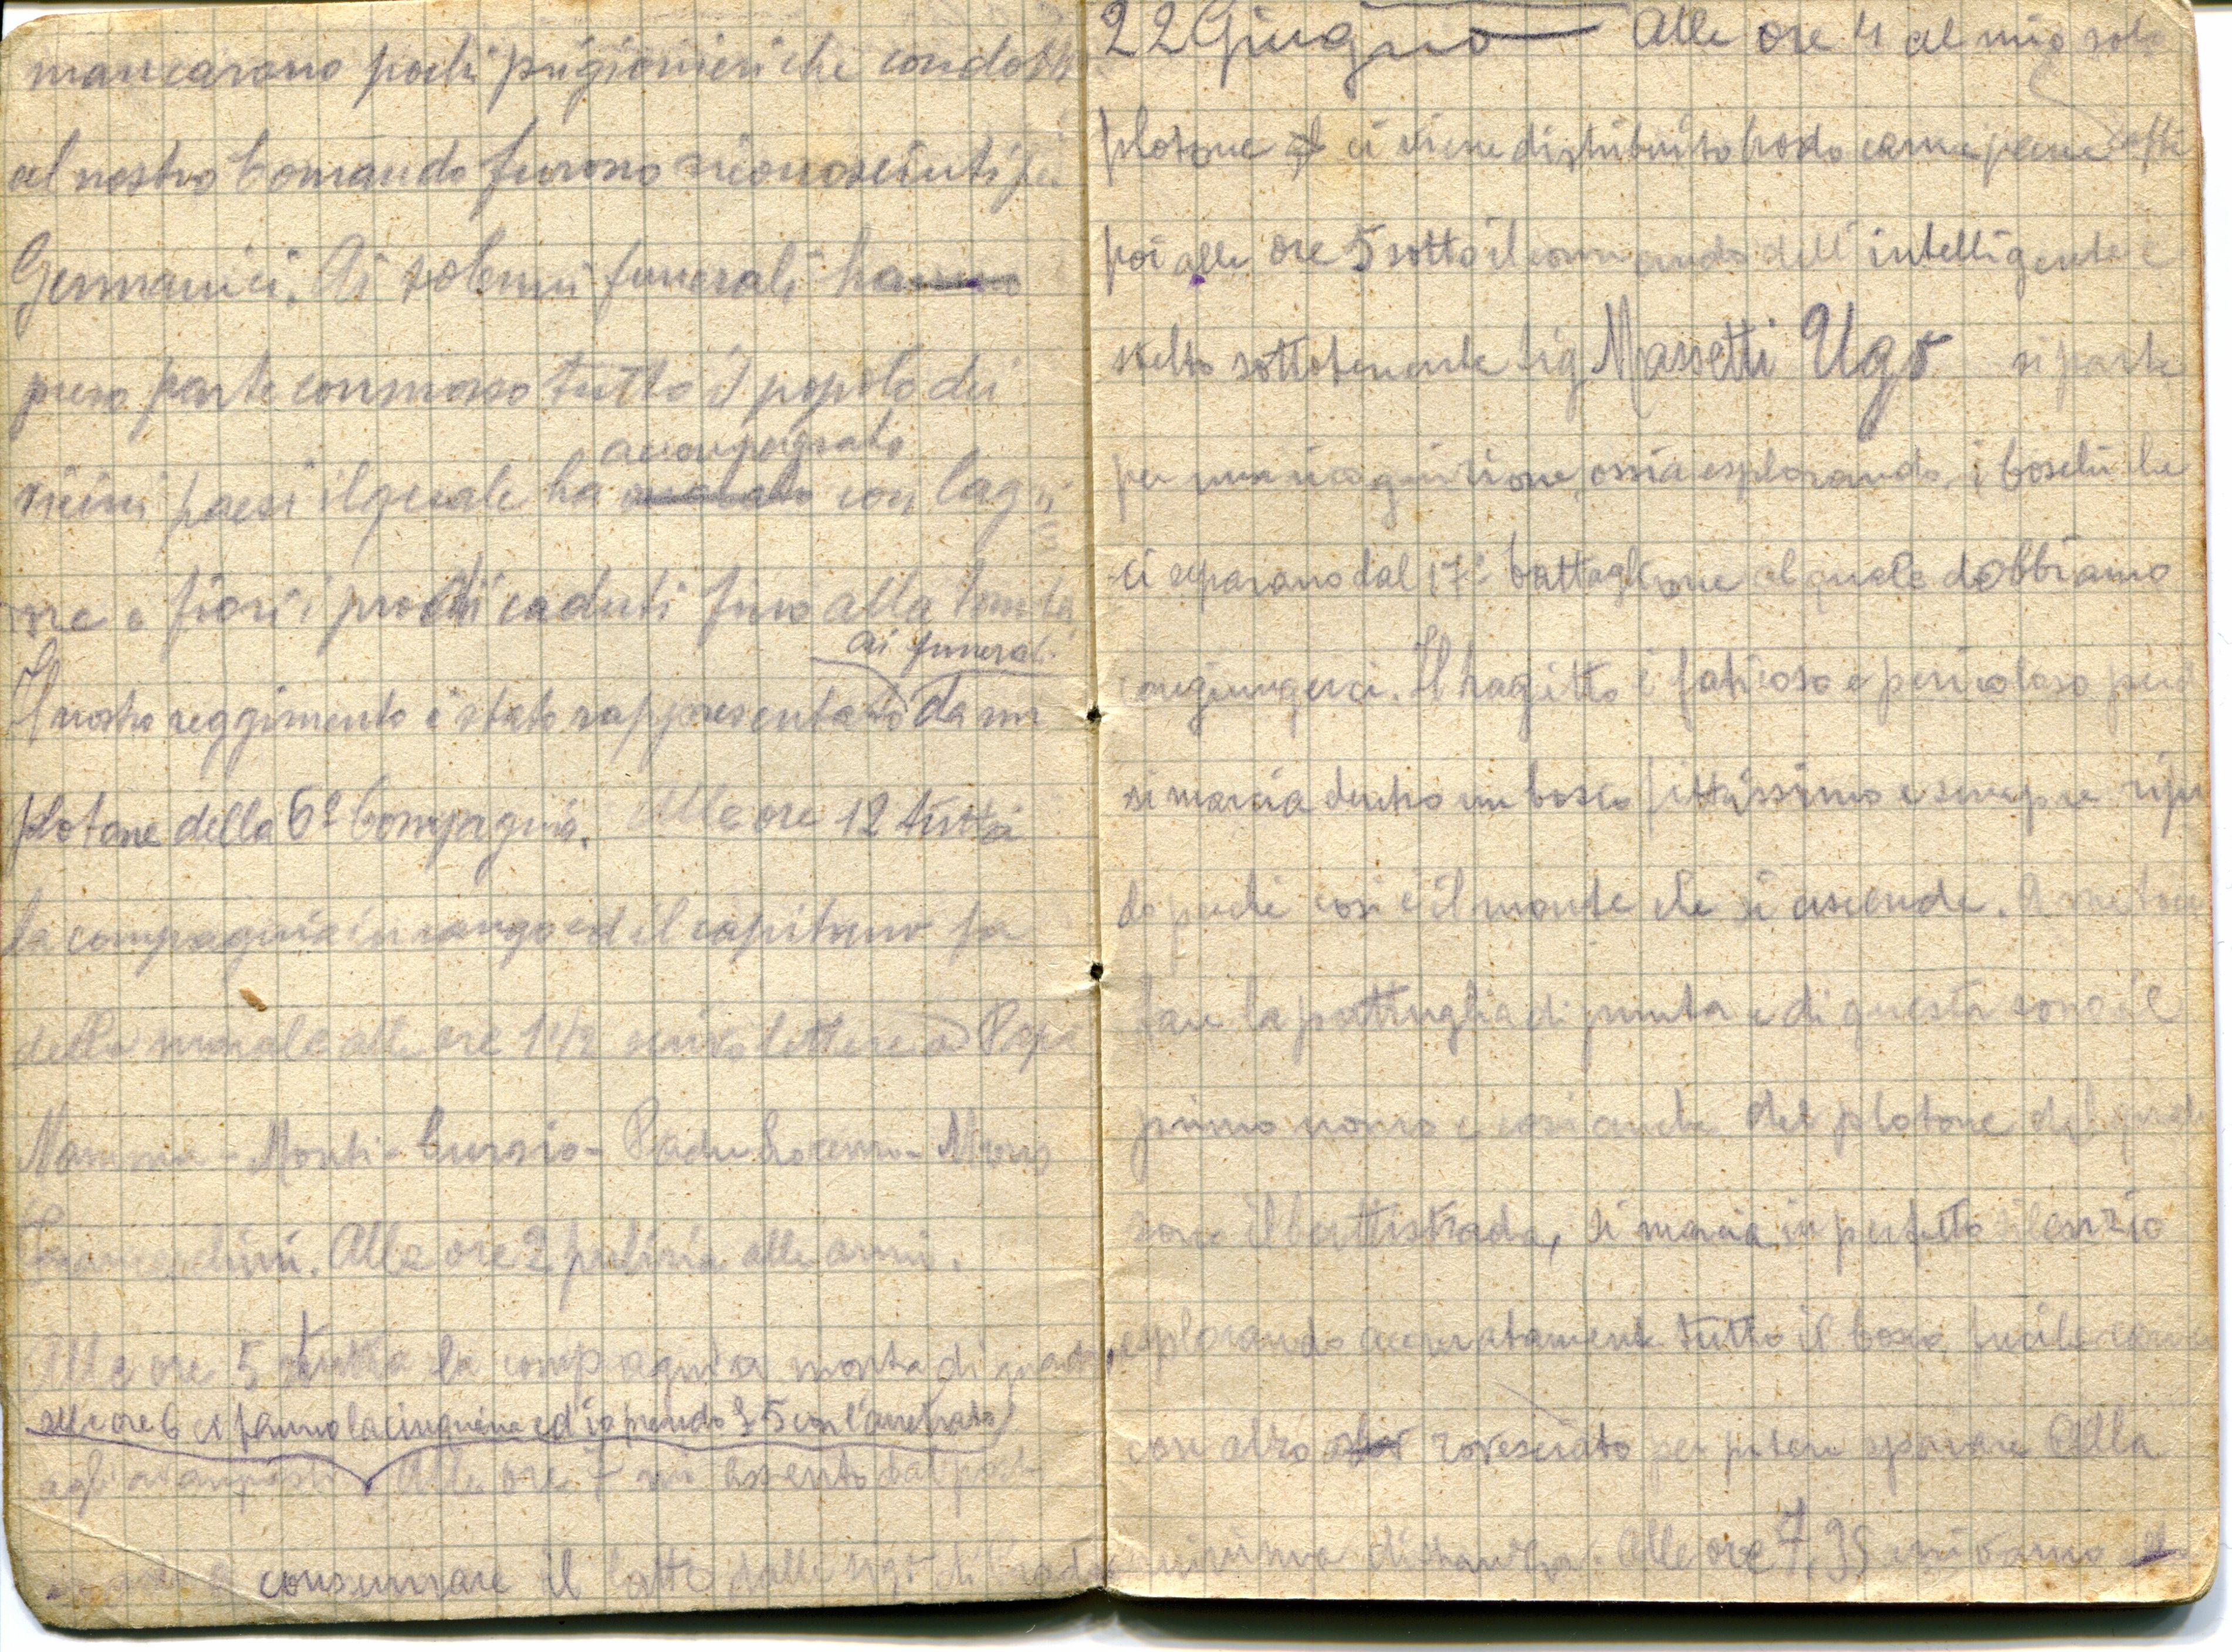 mancarono pochi prigionieri che condotti
al nostro Comando furono riconosciuti per
Germanici. Ai solenni funerali hanno
preso parte commosso tutto il popolo dei
accompagnato
vicini paesi il quale ha con lagri
me e fiori i prodi caduti fino alla tomba
ai funerali
Il nostro reggimento è stato rappresentato da un
plotone della 6ª Compagnia. Alle ore 12 tutta
la compagnia in rango ed il capitano fa
della morale alle ore 1 1/2 scrivo lettere a Papà
Mamma - Monti - Curzio - Padre
Franceschini. Alle ore 2 pulizia alle armi.
Alle ore 5 tutta la compagnia monta di guardia
alle ore 6 ci fanno la cinquina ed io prendo £ 5 con l'arretrato
agli avamposti Alle ore 7 mi assento dal
a consumare il latte dalle sig.
22 Giugno Alle ore 4 al mio solo
plotone ci viene distribuito brodo carne pane caffè
poi alle ore 5 sotto il comando dell'intelligente e
svelto sottotenente sig Massetti Ugo si parte
per una ricognizione, ossia esplorando, i boschi che
ci separano dal 17º battaglione al quale dobbiamo
congiungerci. Il tragitto è faticoso e pericoloso perchè
si marcia dentro un bosco fittissimo e sempre ripi
do perchè così è il monte che si ascende. A me tocca
fare la pattuglia di punta e di questa sono il
primo uomo e così anche del plotone del quale
sono il battistrada, si marcia in perfetto silenzio
esplorando accuratamente tutto il bosco, fucile
con alzo rovesciato per potere sparare alla
minima distanza. Alle ore 7,35 arrivamo